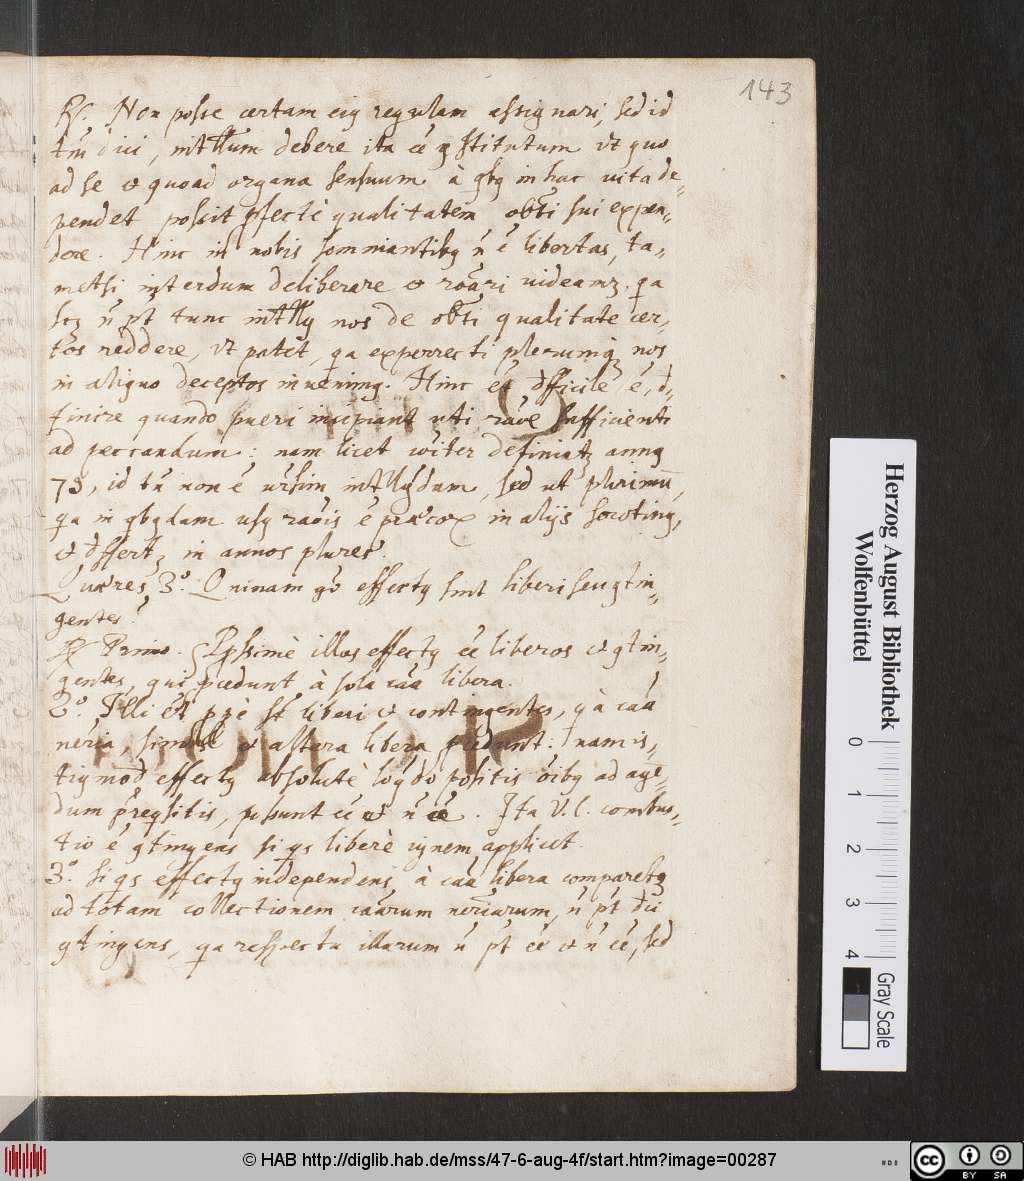 143
Rs. Non posse certam eiꝯ regulam assignari, sed id
tm̄ dici, intllum debere ita eē ꝯstitutum vt quo
ad se et quoad organa sensuum à qbꝯ in hac vita de=
pendet possit pfectè qualitatem obti sui expen=
dere. Hinc in nobis somniantibꝯ ñ ē libertas, ta=
metsi interdum deliberare et roāri uideamꝫ. qa
scꝫ ñ pt tunc intllꝯ nos de obti qualitate cer,
tos reddere, vt patet, qa experrecti plerumqꝫ nos
in aliquo deceptos invenimꝯ. Hinc et dfficile ē, d=
finire quando pueri incipiant uti raōe sufficienti
ad peccandum: nam licet coiter definiatꝫ annꝯ
7ꝯ, id tn̄ non ē ursim intllgdum, sed ut plurimū,
qa in qbꝯdam usꝯ raōis ē præcox in alijs serotinꝯ,
et dffertꝫ in annos plures.
Quæres 3º. Quinam gō effectꝯ sint liberi seu ꝯtin=
gentes?
Rs Primo. Ppssimè illos effectꝯ eē liberos et ꝯtin=
gentes, qui pcedunt à sola caā libera.
2º. Illi et ppè st liberi et contingentes, q à caā
neria, simul et altera libera pcedunt: nam is=
tiꝯmod effectꝯ absolutè loqdo positis oibꝯ ad age=
dum preqsitis, possunt eē et ñ eē. Ita V.C. combus=
tio ē ꝯtingens si qs liberè ignem applicet.
3º. Si qs effectꝯ independens à caā libera comparetꝫ
ad totam collectionem caārum neriarum, ñ pt dici
ꝯtingens, qa respectu illarum ñ pt eē et ñ eē, sed
Herzog August Bibliothek
Wolfenbüttel
0 1 2 3 4
Gray Scale
© HAB http://diglib.hab.de/mss/47-6-aug-4f/start.htm?image=00287
cc BY SA